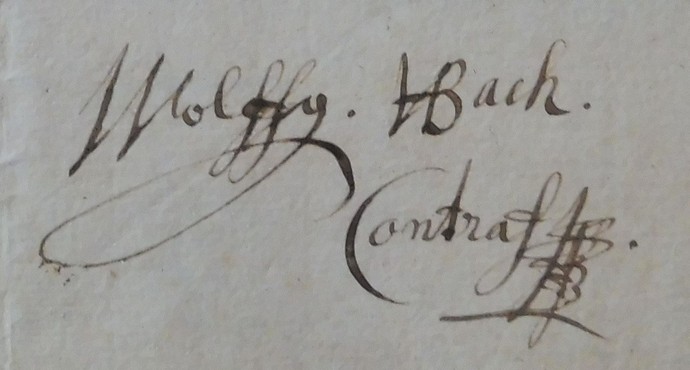 Wolffg. HBach.
Contraf